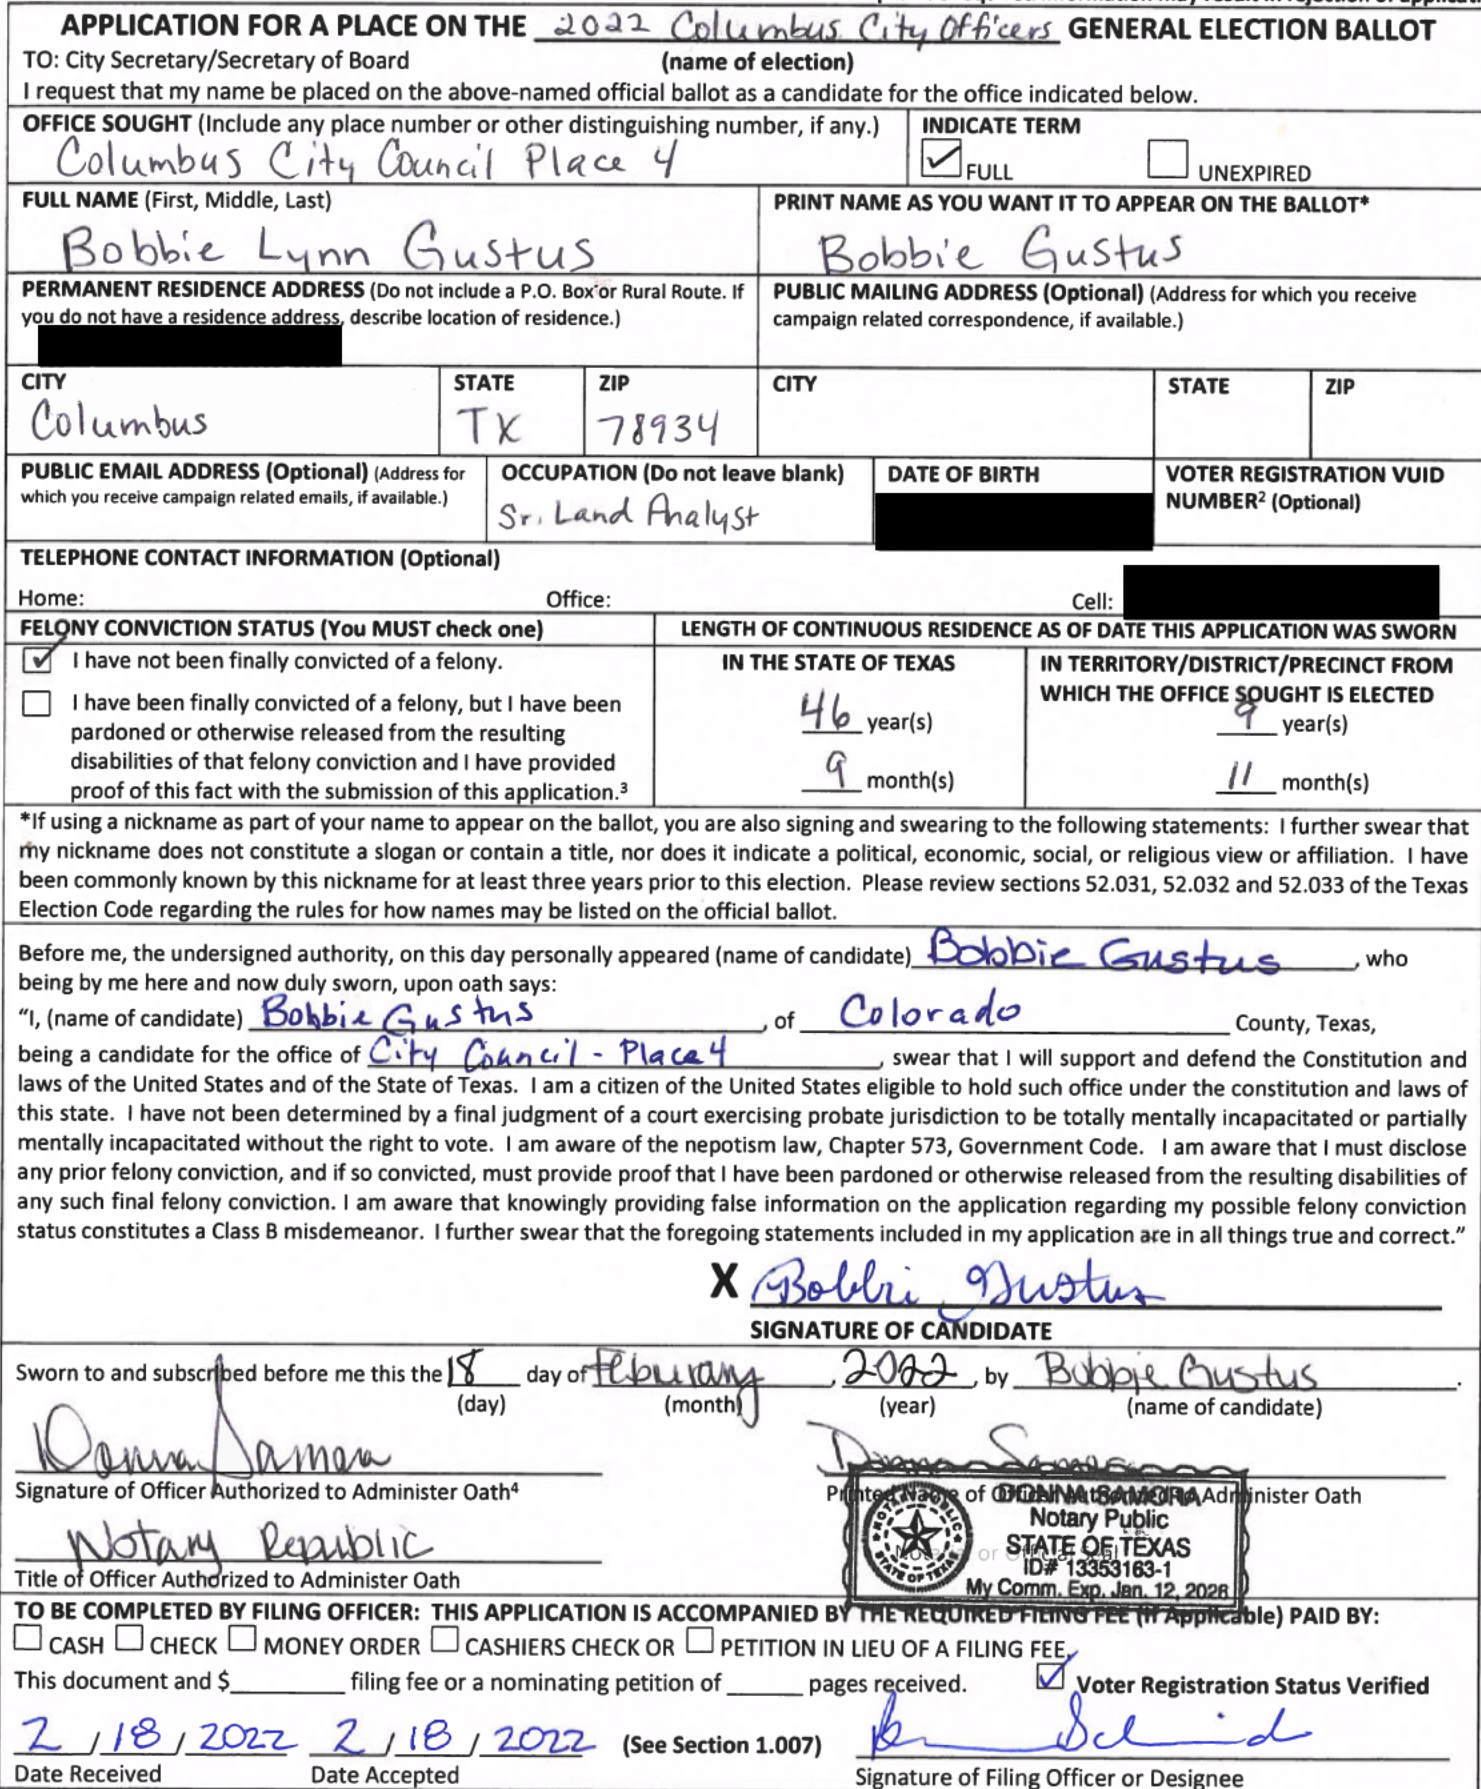 APPLICATION FOR A PLACE ON THE 2022 Columbus City Officers GENERAL ELECTION BALLOT
TO: City Secretary/Secretary of Board (name of election)
I request that my name be placed on the above-named official ballot as a candidate for the office indicated below.
OFFICE SOUGHT (Include any place number or other distinguishing number, if any.)
Columbus City Council Place 4
INDICATE TERM
FULL UNEXPIRED
FULL NAME (First, Middle, Last)
Bobbie Lynn Gustus
PRINT NAME AS YOU WANT IT TO APPEAR ON THE BALLOT*
Bobbie Gustus
PERMANENT RESIDENCE ADDRESS (Do not include a P.O. Box or Rural Route. If
you do not have a residence address, describe location of residence.)
PUBLIC MAILING ADDRESS (Optional) (Address for which you receive
campaign related correspondence, if available.)
CITY STATE ZIP CITY STATE ZIP
Columbus TX 78934
PUBLIC EMAIL ADDRESS (Optional) (Address for
which you receive campaign related emails, if available.)
OCCUPATION (Do not leave blank)
Sr. Land Analyst
DATE OF BIRTH
VOTER REGISTRATION VUID
NUMBER² (Optional)
TELEPHONE CONTACT INFORMATION (Optional)
Home: Office: Cell:
FELONY CONVICTION STATUS (You MUST check one)
I have not been finally convicted of a felony.
I have been finally convicted of a felony, but I have been
pardoned or otherwise released from the resulting
disabilities of that felony conviction and I have provided
proof of this fact with the submission of this application.³
LENGTH OF CONTINUOUS RESIDENCE AS OF DATE THIS APPLICATION WAS SWORN
IN THE STATE OF TEXAS
46 year(s)
9 month(s)
IN TERRITORY/DISTRICT/PRECINCT FROM
WHICH THE OFFICE SOUGHT IS ELECTED
9 year(s)
11 month(s)
*If using a nickname as part of your name to appear on the ballot, you are also signing and swearing to the following statements: I further swear that
my nickname does not constitute a slogan or contain a title, nor does it indicate a political, economic, social, or religious view or affiliation. I have
been commonly known by this nickname for at least three years prior to this election. Please review sections 52.031, 52.032 and 52.033 of the Texas
Election Code regarding the rules for how names may be listed on the official ballot.
Before me, the undersigned authority, on this day personally appeared (name of candidate) Bobbie Gustus, who
being by me here and now duly sworn, upon oath says:
"I, (name of candidate) Bobbie Gustus, of Colorado County, Texas,
being a candidate for the office of City Council - Place 4, swear that I will support and defend the Constitution and
laws of the United States and of the State of Texas. I am a citizen of the United States eligible to hold such office under the constitution and laws of
this state. I have not been determined by a final judgment of a court exercising probate jurisdiction to be totally mentally incapacitated or partially
mentally incapacitated without the right to vote. I am aware of the nepotism law, Chapter 573, Government Code. I am aware that I must disclose
any prior felony conviction, and if so convicted, must provide proof that I have been pardoned or otherwise released from the resulting disabilities of
any such final felony conviction. I am aware that knowingly providing false information on the application regarding my possible felony conviction
status constitutes a Class B misdemeanor. I further swear that the foregoing statements included in my application are in all things true and correct."
X Bobbie Gustus
SIGNATURE OF CANDIDATE
Sworn to and subscribed before me this the 18 day of Feburary, 2022, by Bobbie Gustus.
(day) (month) (year) (name of candidate)
Donna Samora Donna Samora
Signature of Officer Authorized to Administer Oath⁴ Printed Name of Officer Authorized to Administer Oath
DONNA SAMORA
Notary Public
STATE OF TEXAS
ID# 13353163-1
My Comm. Exp. Jan. 12, 2026
NOTARY PUBLIC
STATE OF TEXAS
Notarial or Official Seal
Notary Republic
Title of Officer Authorized to Administer Oath
TO BE COMPLETED BY FILING OFFICER: THIS APPLICATION IS ACCOMPANIED BY THE REQUIRED FILING FEE (If Applicable) PAID BY:
CASH CHECK MONEY ORDER CASHIERS CHECK OR PETITION IN LIEU OF A FILING FEE.
This document and $ filing fee or a nominating petition of pages received. Voter Registration Status Verified
2 / 18 / 2022 2 / 18 / 2022 (See Section 1.007)
Date Received Date Accepted Signature of Filing Officer or Designee